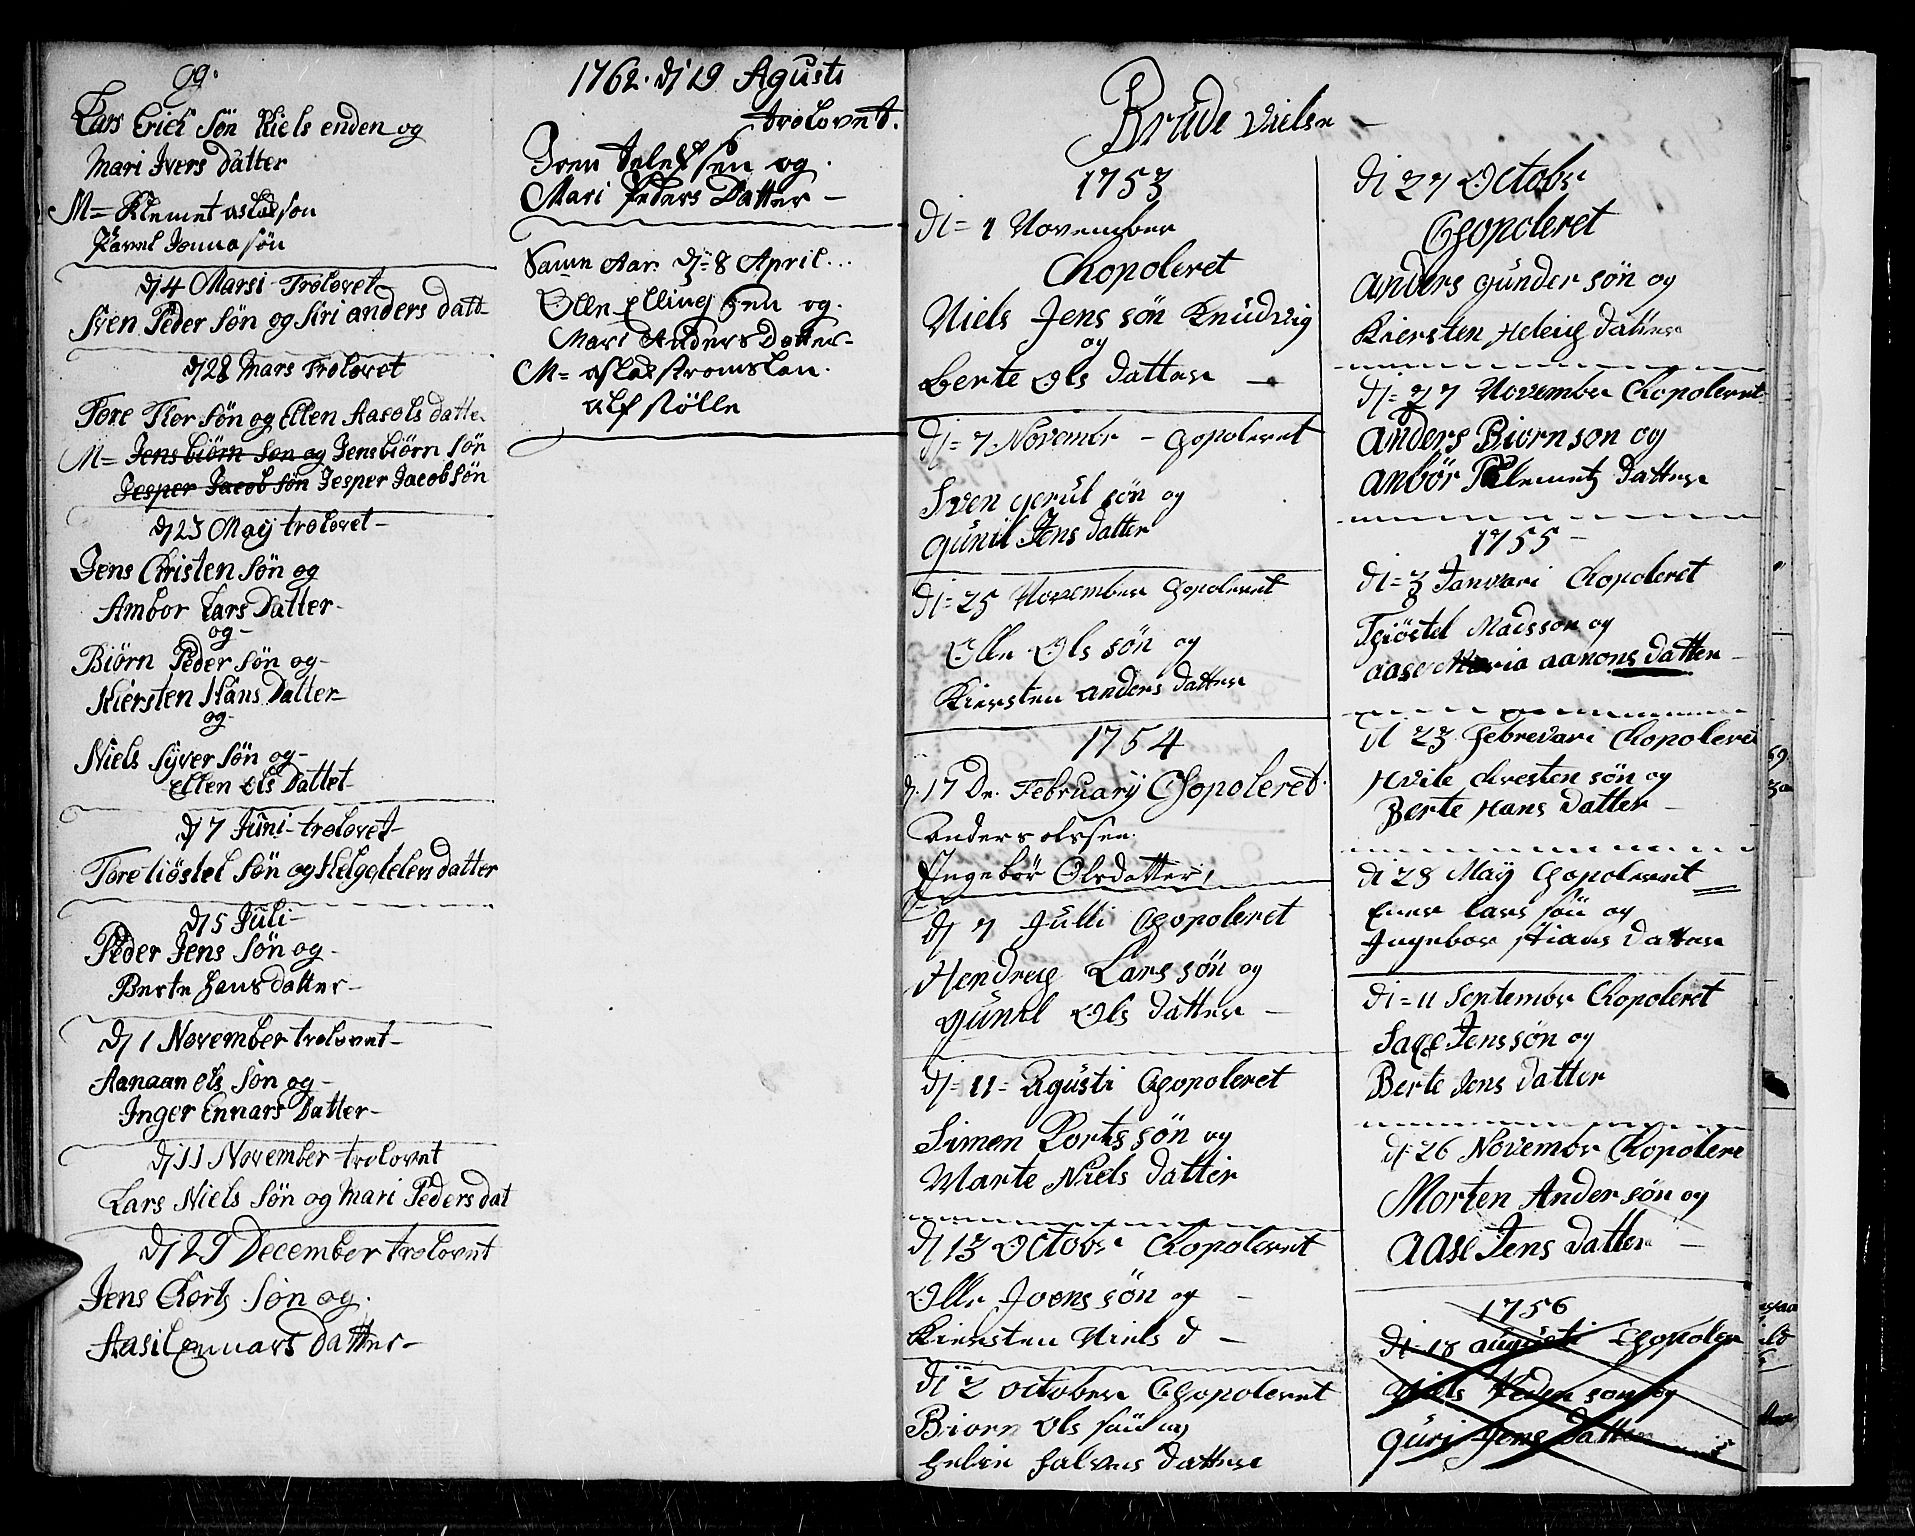 og.
Lars Erich Søn Niels enden og
Mari Ivers Datter
M= Klement Aslacson
Pavel Jonnasøn
dj 4 Marsi Trolovet
Sven Peder Søn og Siri anders datt
dj 28 Mars Trolovet
Tore Tlor Søn og Ellen Aacols datte
M= Jensbiörn Søn og Jensbiörn Søn
Jesper Jacob Søn Jesper Jacob Søn
dj 23 Maÿ trolovet-
Jens Christen Søn og
Ambor Lars Datter-
og-
Biørn Peder Søn og-
Kiersten Hans Datter-
og-
Niels Syver Søn og-
Ellen Ols Dattet
dj 7 Juni-trolovet-
Tore tiöstel Søn og Helge telens datter
dj 5 Juli-
Peder Jens Søn og-
Berte hans datter-
dj 1 November trolovet-
Aanaan Ols Søn og-
Inger Ennars Datter-
dj 11 November-trolovet
Lars Niels Søn og Mari Peders dat
dj 29 December trolovet
Jens Chorts Søn og.
Aasil Ennars Datter-
1762. dj 19 Agusti
trolovet.
Iven telefsen og.
Mari Peders Datter-
Samme Aar. dj 8 April...
Olle Ellingsen og.
Mari Anders Datter-
M= Aslac stromslan.
Alf Stølle
Brude Vielse -
1753
di= 1 November
Chopoleret
Niels Jens søn Knudvig
og
berte Ols datter -
dj= 7 November - Chopoleret
Sven gerul søn og
gunil Jens datter
dj= 25 November Chopoleret
Olle Ols søn og
Kiersten anders datter
1754
d. 17 De. February Chopoleret.
Anders olssen.
Ingebör Olsdatter,
dj 7 Julli Chopoleret
Hendreg Lars søn og
gunil Ols datter -
dj= 11= Agusti Chopoleret
Simen Korts søn og
Marte Niels datter
dj 13 October Chopoleret
Olle Joens søn og -
Kiersten Niels d -
di 2 october Chopoleret
Biorn Ols søn og
helie halvors datter
di 27 October
Chopoleret
anders gunder søn og
Kiersten Heleig datter
dj= 27 November Chopoleret
anders Biornson og
anbör Klemetz datter
1755-
di= 3 Janvari Chopoleret
Tgiöstel Madsson og
aase Maria aanons datter -
di 23 Febrevari Chopolere
Hvile Chresten søn og
Berte Hans datter -
di 28 Maÿ Chopoleret
Ener Lars søn og
Ingebor stians datter
di= 11 September Chopoleret
Sage Jens søn og
Berte Jens datter
dj 26 November Chopolere
Morten Ander søn og
aase Jens datter -
1756
di= 18 augusti Chopoler
Niels Peder son og
guri Jens datter